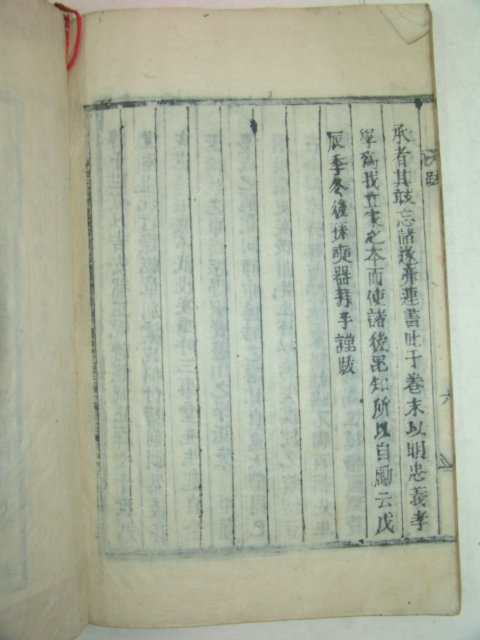 跋
承者其敢忘諸遂幷連書此于卷末以明忠義孝
學爲我世家之本而使諸後昆知所以自勵云戊
辰季冬後孫奭器拜手謹跋
六